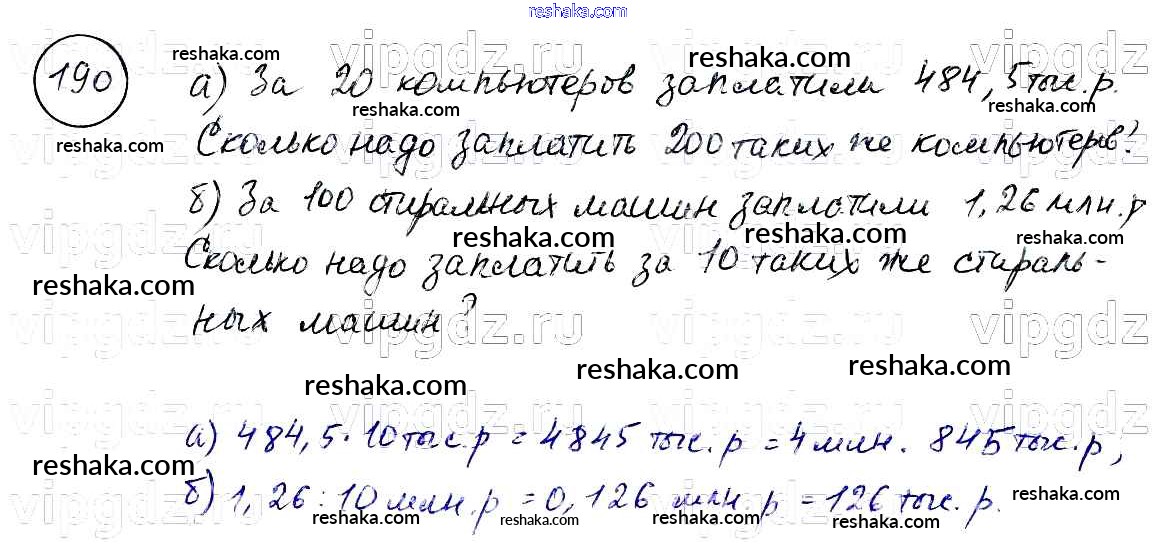 190
а) За 20 компьютеров заплатили 484,5 тыс. р.
Сколько надо заплатить 200 таких же компьютеров?
б) За 100 стиральных машин заплатили 1,26 млн. р
Сколько надо заплатить за 10 таких же стираль-
ных машин?
а) 484,5 · 10 тыс. р = 4845 тыс. р = 4 млн. 845 тыс. р,
б) 1,26 : 10 млн. р = 0,126 млн. р = 126 тыс. р.
reshaka.com
vipgdz.ru